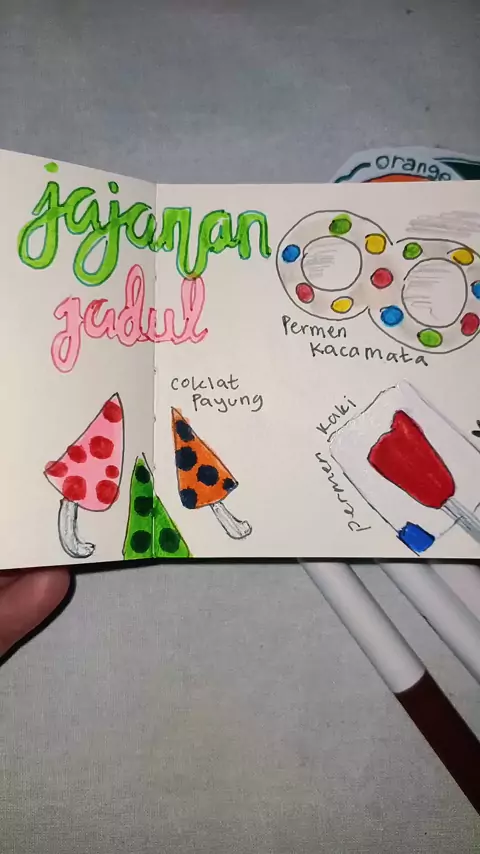 orange
jajanan
jadul
Permen
Kacamata
Coklat
Payung
Permen Kaki